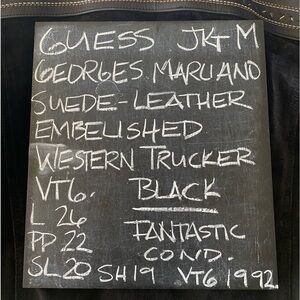 GUESS JKT M
GEORGES MARCIANO
SUEDE-LEATHER
EMBELISHED
WESTERN TRUCKER
VTG. BLACK
L 26 FANTASTIC
PP 22 COND.
SL 20 SH 19 VTG 1992